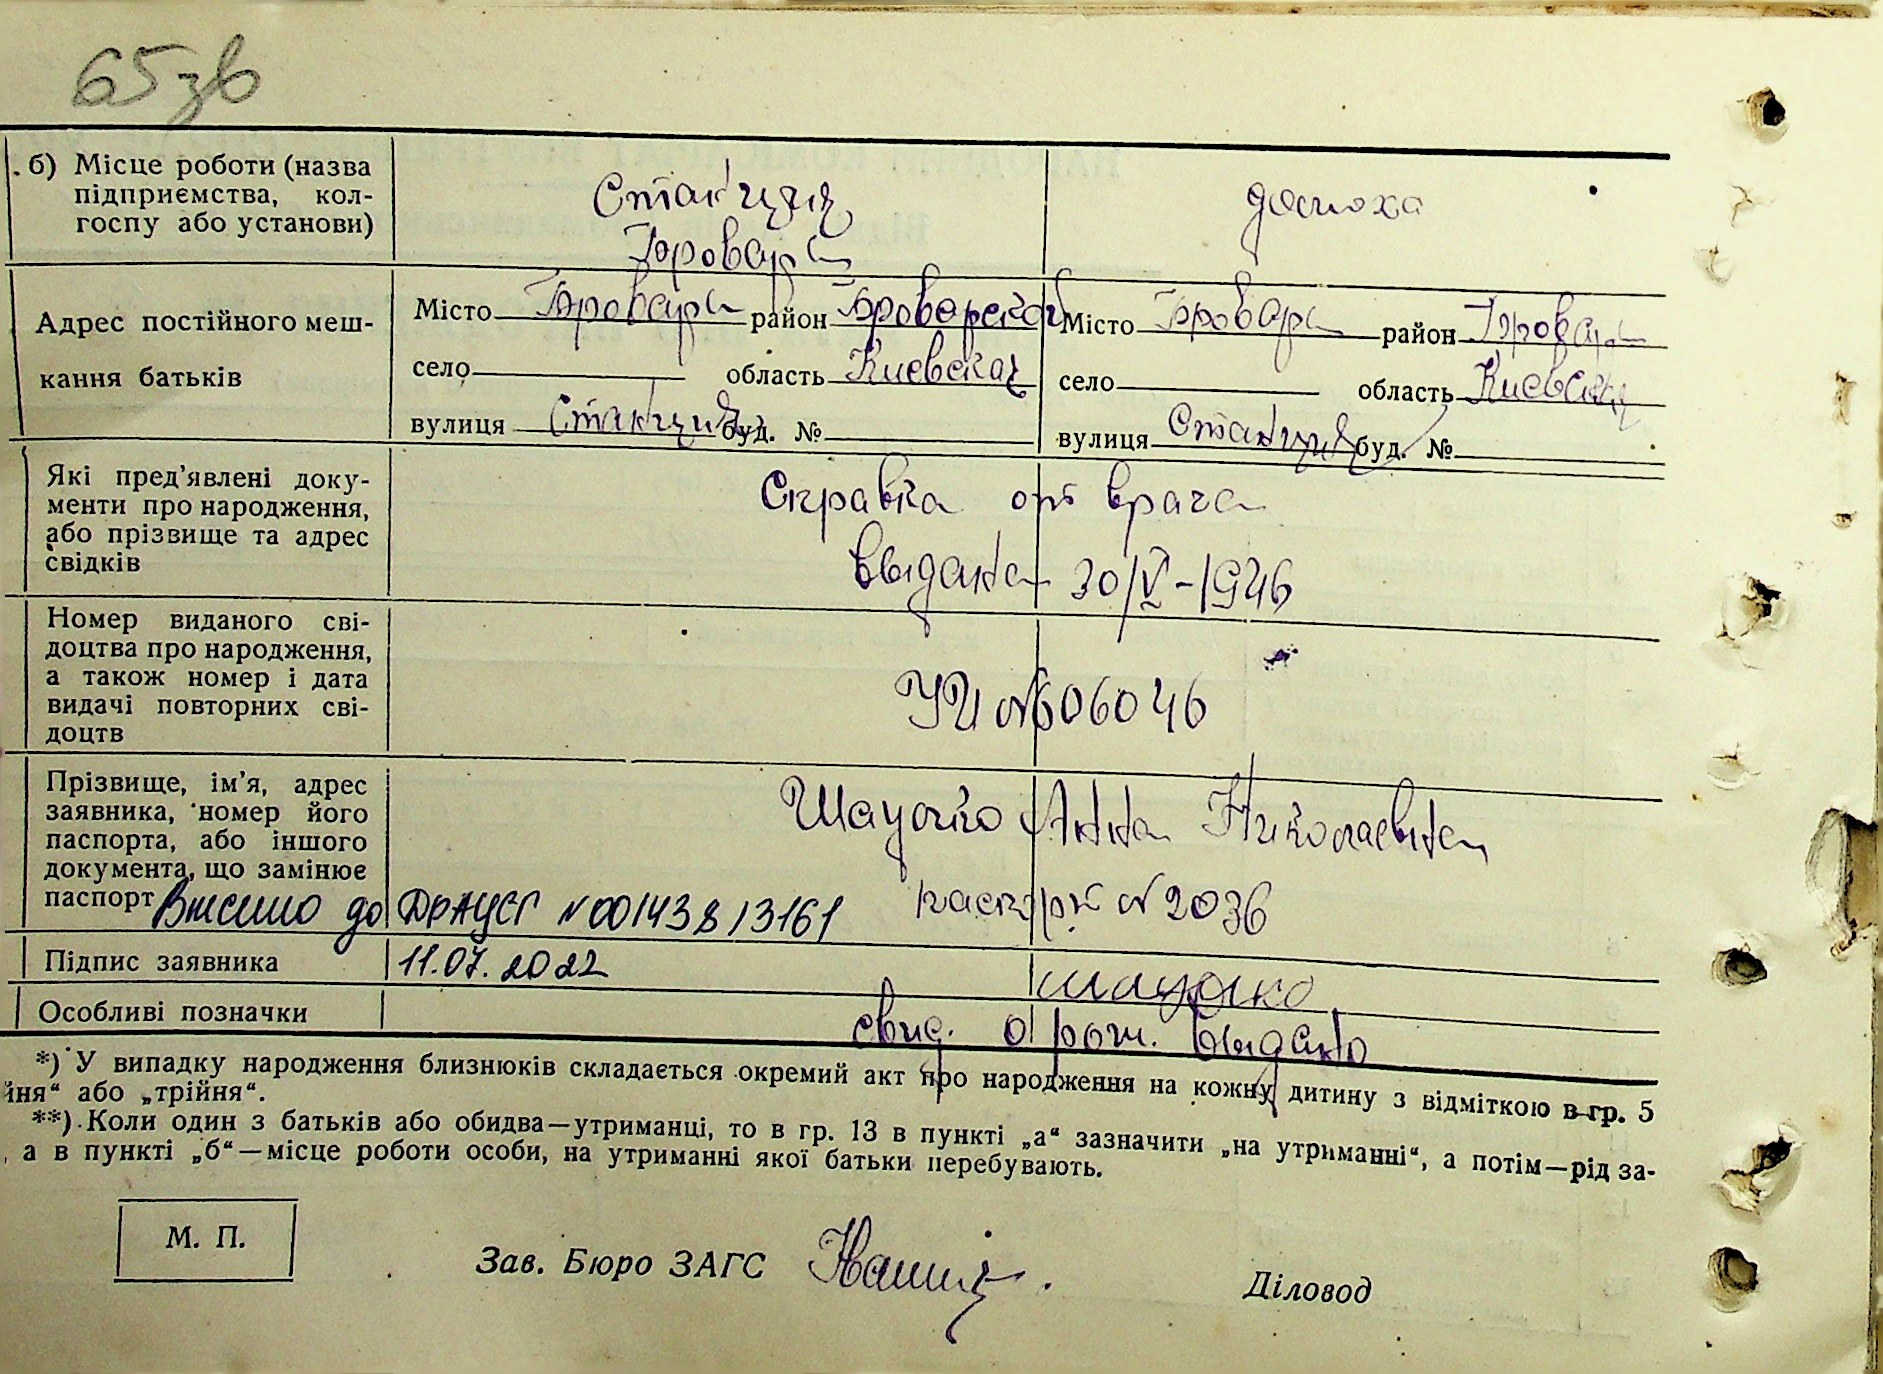 65зв
б) Місце роботи (назва
підприємства, кол-
госпу або установи)
Станция
Бровары
Адрес постійного меш-
кання батьків
Місто Бровары район Броварской
село область Киевская
вулиця Станция буд. №
Місто Бровары район Бровары
село область Киевская
вулиця Станция буд. №
Які пред'явлені доку-
менти про народження,
або прізвище та адрес
свідків
Справка от врача
выдана 30/V-1946
Номер виданого сві-
доцтва про народження,
а також номер і дата
видачі повторних сві-
доцтв
№606046
Прізвище, ім'я, адрес
заявника, номер його
паспорта, або іншого
документа, що замінює
паспорт
Анна Николаевна
паспорт № 2036
Внесено до ДРАЦСГ №00143813161
11.07.2022
Підпис заявника
Особливі позначки
свид. о рож. выдано
*) У випадку народження близнюків складається окремий акт про народження на кожну дитину з відміткою в гр. 5
йня“ або „трійня“.
**) Коли один з батьків або обидва—утриманці, то в гр. 13 в пункті „а“ зазначити „на утриманні“, а потім—рід за-
, а в пункті „б“—місце роботи особи, на утриманні якої батьки перебувають.
М. П.
Зав. Бюро ЗАГС
Діловод